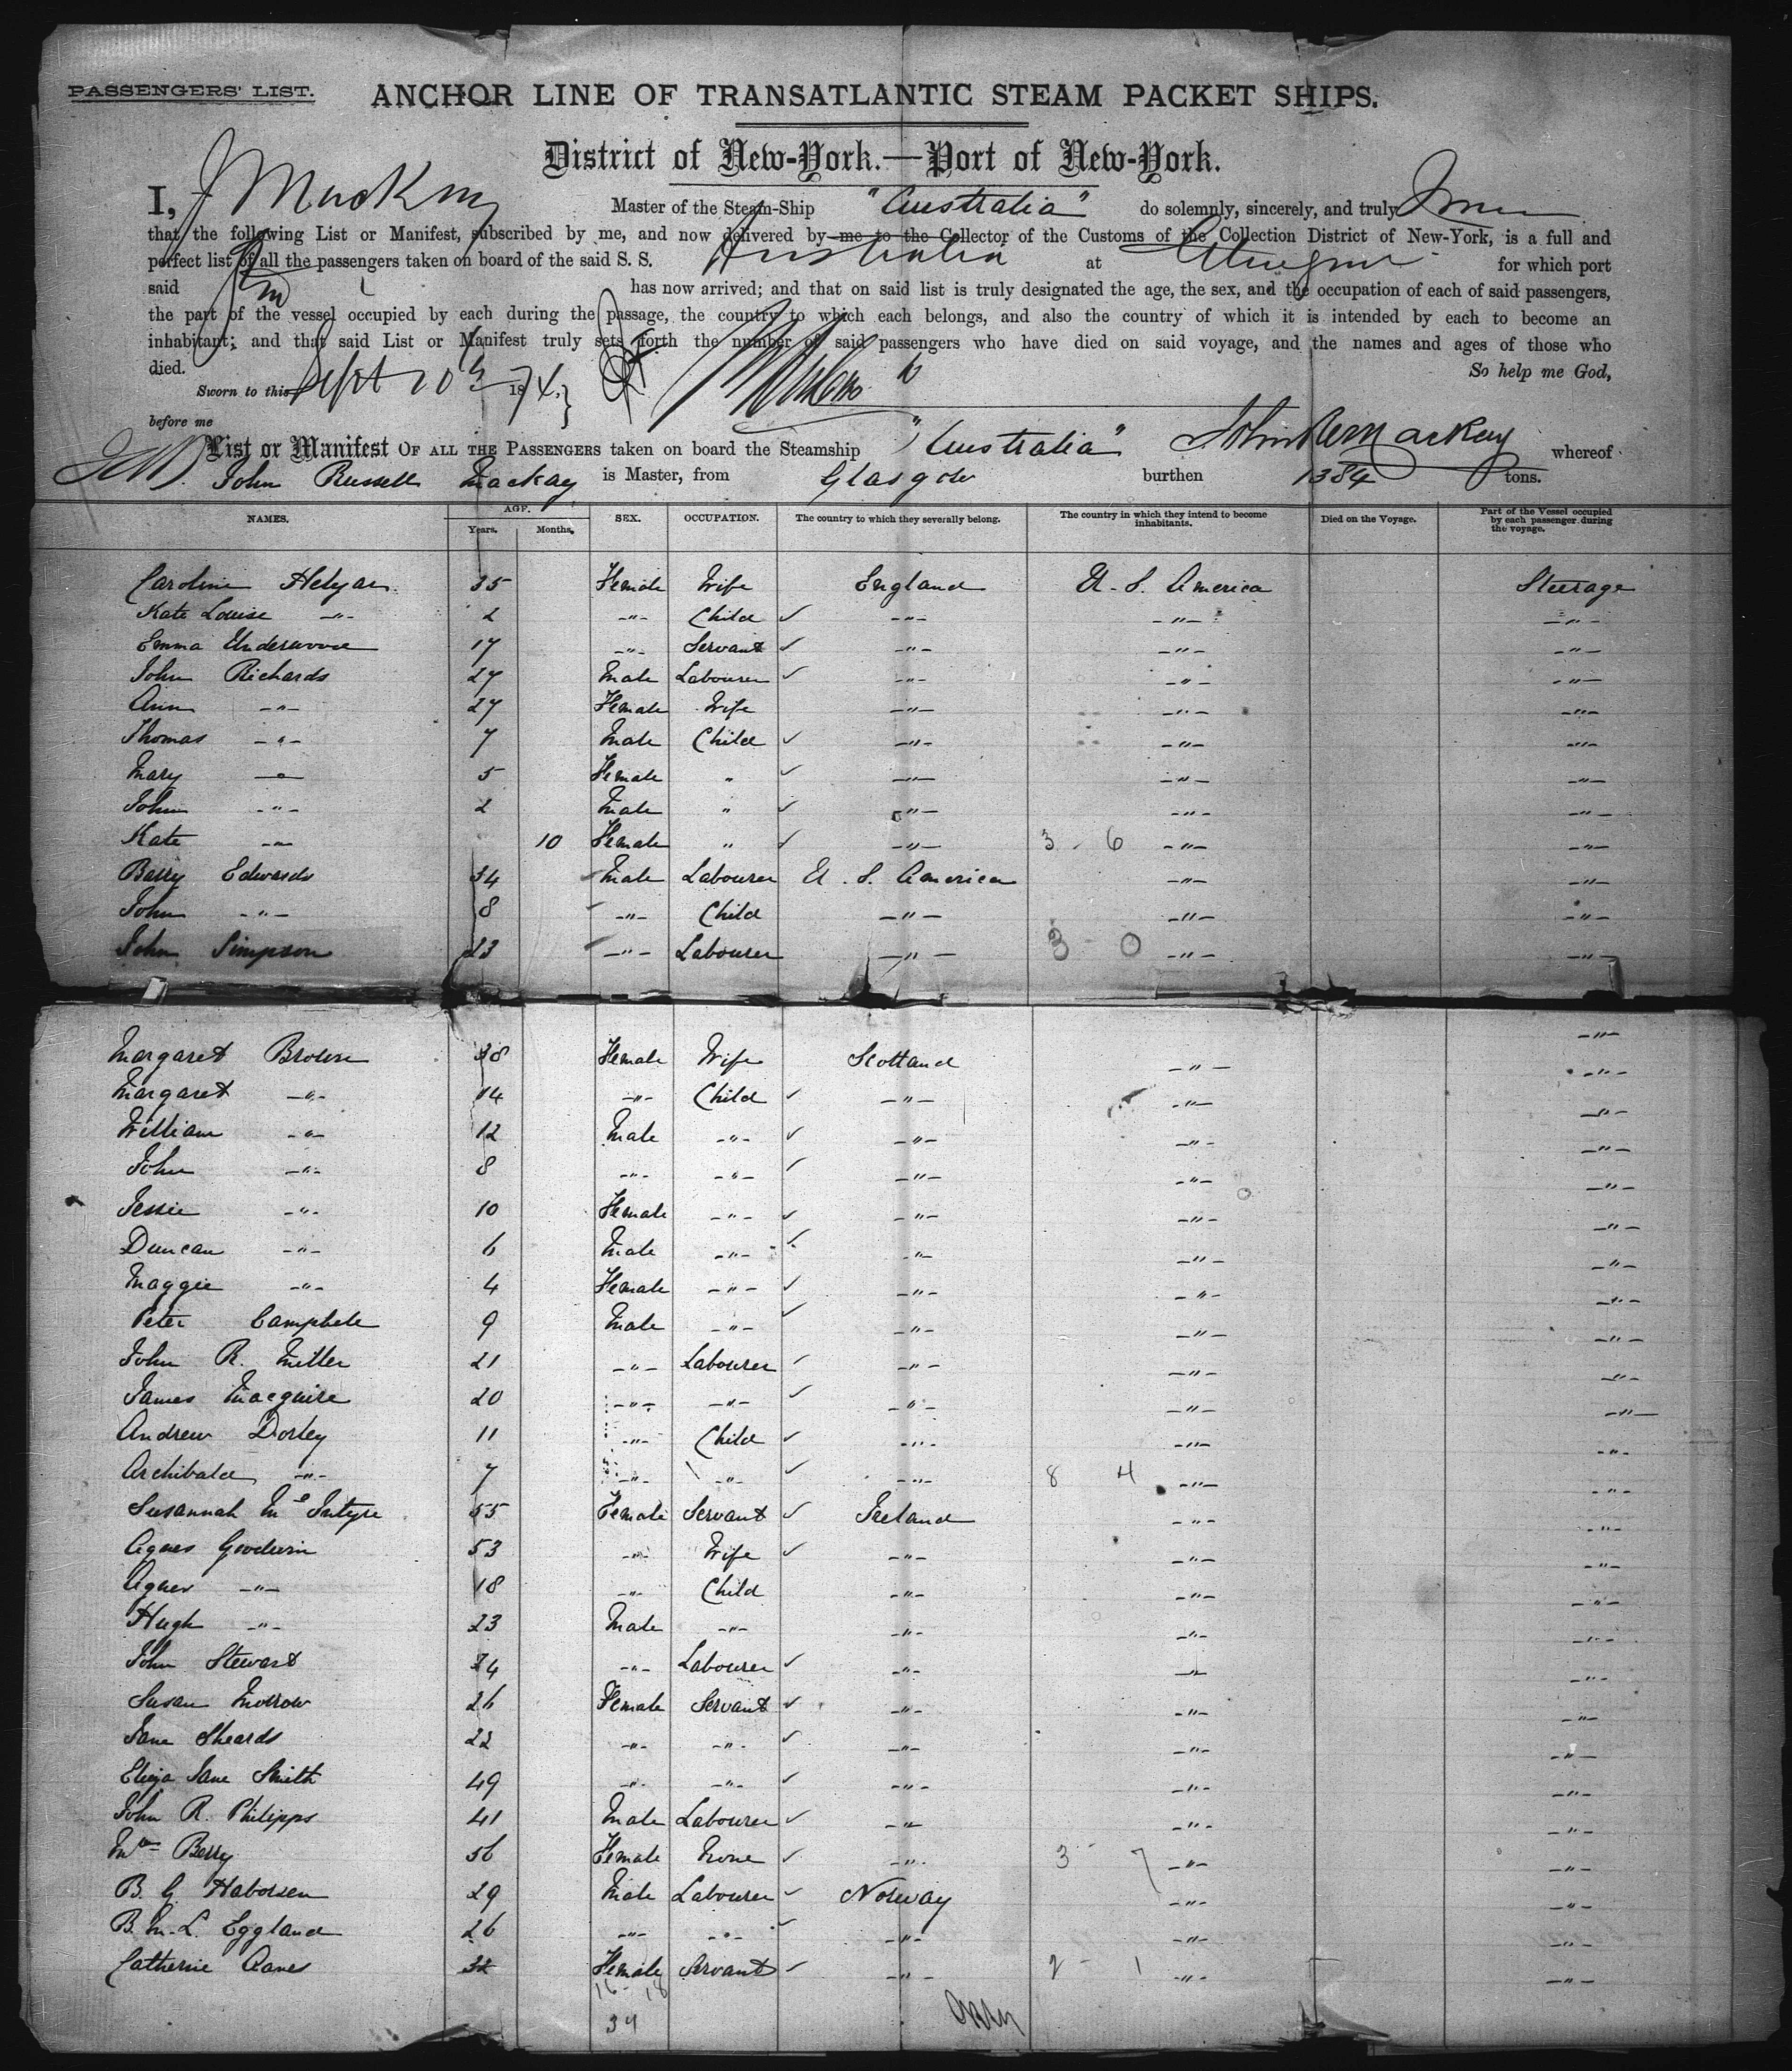 PASSENGERS' LIST.
ANCHOR LINE OF TRANSATLANTIC STEAM PACKET SHIPS.
District of New-York.—Port of New-York.
I, Master of the Steam-Ship "Australia" do solemnly, sincerely, and truly
that the following List or Manifest, subscribed by me, and now delivered by me to the Collector of the Customs of the Collection District of New-York, is a full and
perfect list of all the passengers taken on board of the said S. S. Australia at for which port
said has now arrived; and that on said list is truly designated the age, the sex, and the occupation of each of said passengers,
the part of the vessel occupied by each during the passage, the country to which each belongs, and also the country of which it is intended by each to become an
inhabitant; and that said List or Manifest truly sets forth the number of said passengers who have died on said voyage, and the names and ages of those who
died. So help me God,
Sworn to this Sept 10th 1874.
before me
List or Manifest OF ALL THE PASSENGERS taken on board the Steamship "Australia" whereof
John Russell Mackay is Master, from Glasgow burthen 1384 tons.
NAMES. AGE. Years. Months. SEX. OCCUPATION. The country to which they severally belong. The country in which they intend to become inhabitants. Died on the Voyage. Part of the Vessel occupied by each passenger during the voyage.
Caroline Helyar 35 Female Wife England U. S. America Steerage
Kate Louise -"- 2 -"- Child ✓ -"- -"- -"-
Emma Underwood 17 -"- Servant ✓ -"- -"- -"-
John Richards 27 Male Labourer ✓ -"- -"- -"-
Ann -"- 27 Female Wife -"- -"- -"-
Thomas -"- 7 Male Child ✓ -"- -"- -"-
Mary -"- 5 Female " ✓ -"- -"- -"-
John -"- 2 Male " ✓ -"- -"- -"-
Kate -"- 10 Female " ✓ -"- 3 - 6 -"- -"-
Barry Edwards 34 Male Labourer U. S. America -"- -"-
John -"- 8 -"- Child -"- -"- -"-
John Simpson 23 -"- Labourer -"- 3 - 0 -"- -"-
Margaret Brown 38 Female Wife Scotland -"- -"-
Margaret -"- 14 -"- Child ✓ -"- -"- -"-
William -"- 12 Male -"- ✓ -"- -"- -"-
John -"- 8 -"- -"- ✓ -"- -"- -"-
Jessie -"- 10 Female -"- ✓ -"- -"- -"-
Duncan -"- 6 Male -"- ✓ -"- -"- -"-
Maggie -"- 4 Female -"- ✓ -"- -"- -"-
Peter Campbell 9 Male -"- ✓ -"- -"- -"-
John R. Miller 21 -"- Labourer ✓ -"- -"- -"-
James Macguire 20 -"- -"- ✓ -"- -"- -"-
Andrew Dorley 11 -"- Child ✓ -"- -"- -"-
Archibald -"- 7 -"- -"- ✓ -"- 8 4 -"- -"-
Susannah McIntyre 55 Female Servant ✓ Ireland -"- -"-
Agnes Goodwin 53 -"- Wife ✓ -"- -"- -"-
Agnes -"- 18 -"- Child -"- -"- -"-
Hugh -"- 23 Male -"- -"- -"- -"-
John Stewart 24 -"- Labourer ✓ -"- -"- -"-
Susan Morrow 26 Female Servant ✓ -"- -"- -"-
Jane Sheards 22 -"- -"- ✓ -"- -"- -"-
Eliza Jane Smith 49 -"- -"- ✓ -"- -"- -"-
John R. Philipps 41 Male Labourer ✓ -"- -"- -"-
Berry 56 Female None ✓ -"- 3 - 7 -"- -"-
B. G. Haborsen 29 Male Labourer ✓ Norway -"- -"-
B. M. L. Eggland 26 -"- -"- ✓ -"- -"- -"-
Catherine Aanes 32 Female Servant ✓ -"- 2 - 1 -"- -"-
16 - 18
34